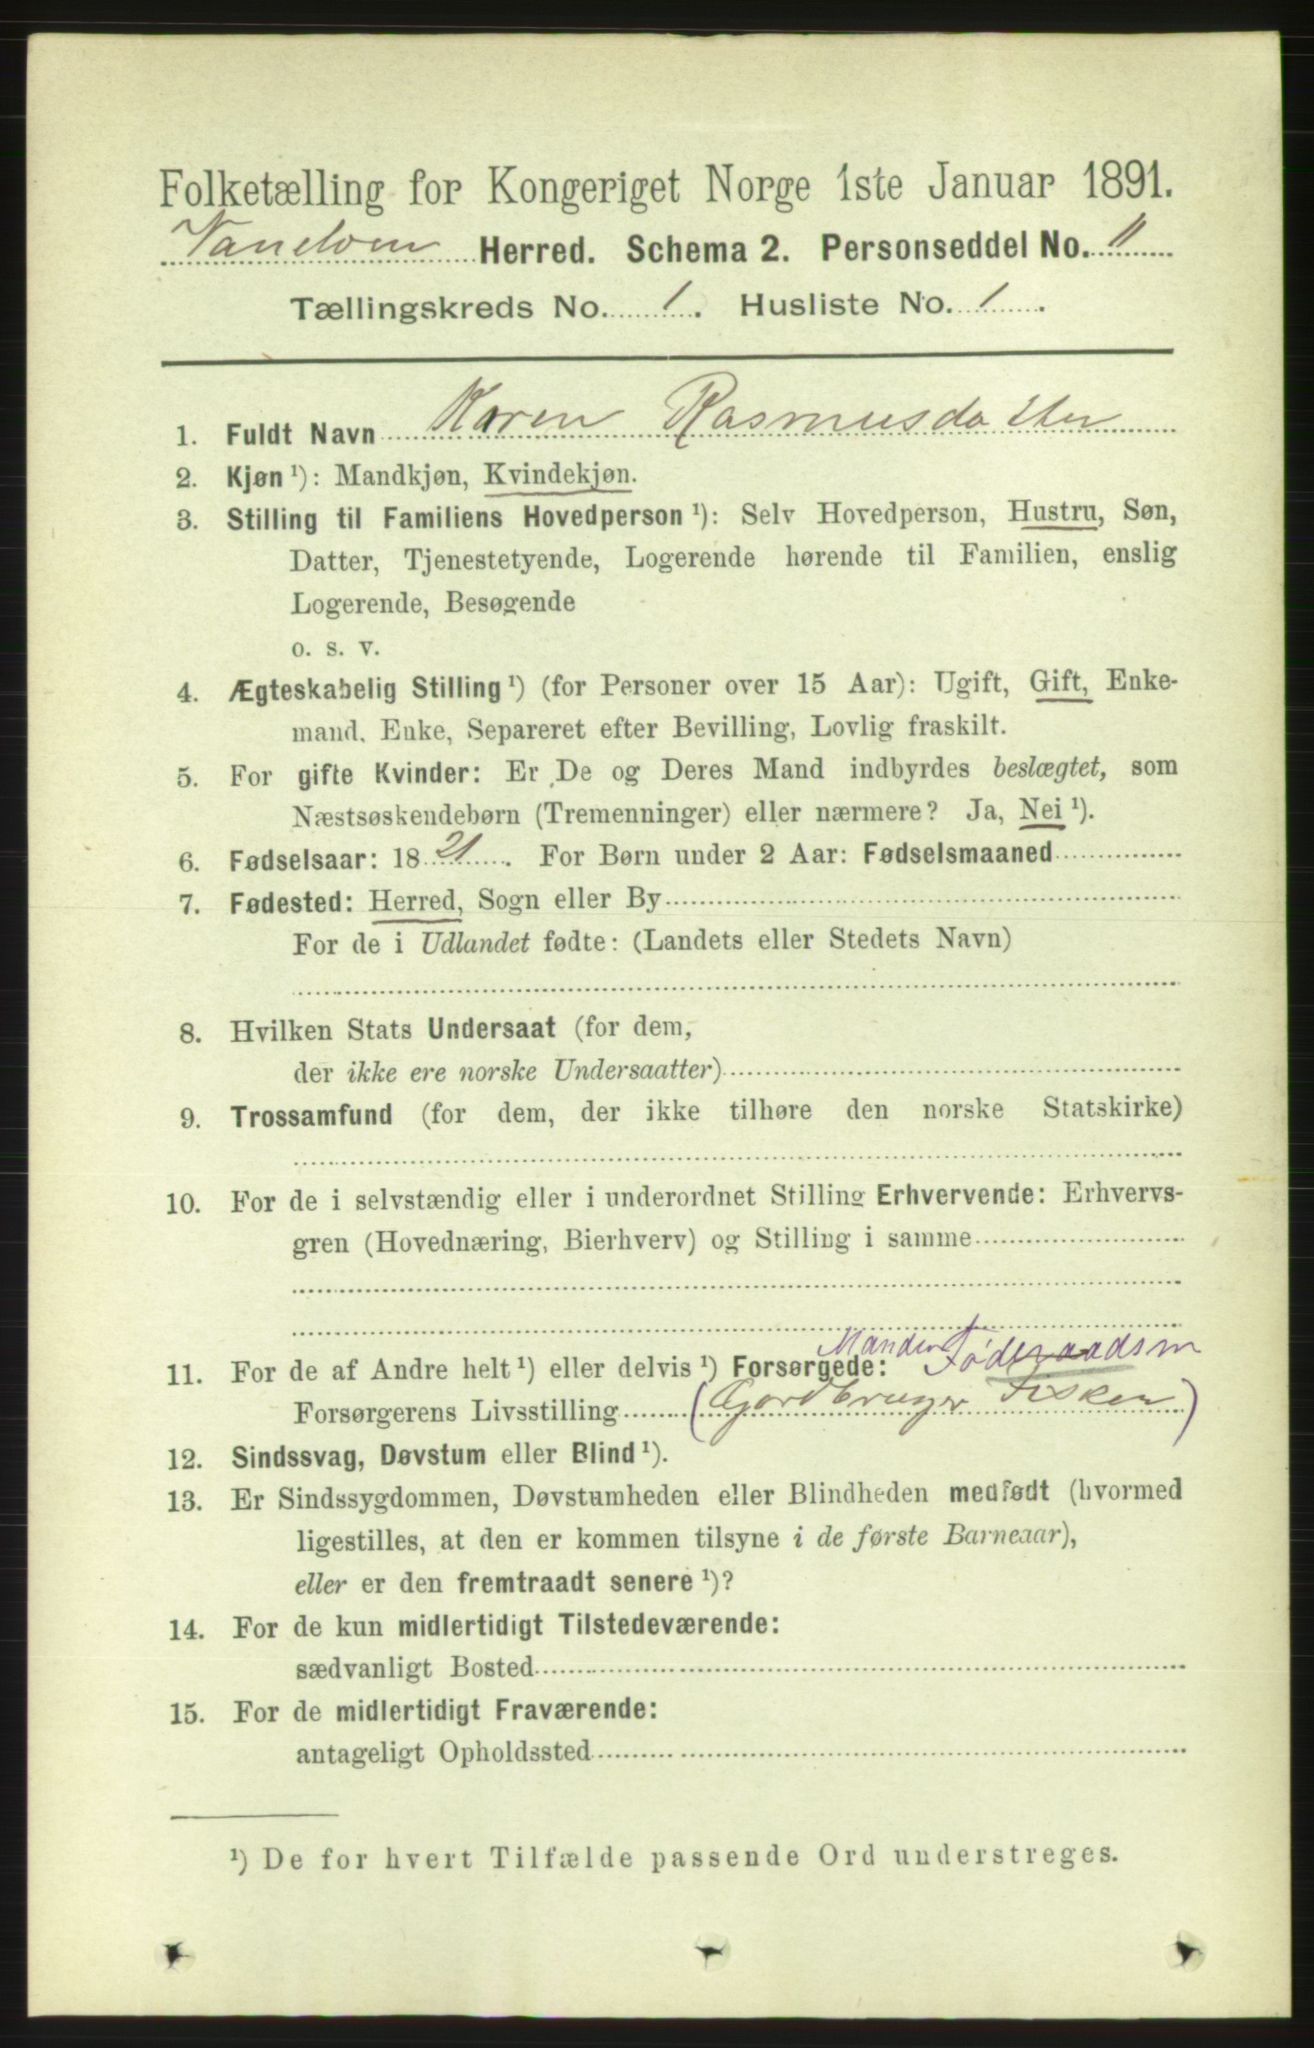 Folketælling for Kongeriget Norge 1ste Januar 1891.
Vanelven Herred. Schema 2. Personseddel No. 11
Tællingskreds No. 1. Husliste No. 1.
1. Fuldt Navn Karen Rasmusdatter
2. Kjøn ¹): Mandkjøn, Kvindekjøn.
3. Stilling til Familiens Hovedperson ¹): Selv Hovedperson, Hustru, Søn,
Datter, Tjenestetyende, Logerende hørende til Familien, enslig
Logerende, Besøgende
o. s. v.
4. Ægteskabelig Stilling ¹) (for Personer over 15 Aar): Ugift, Gift, Enke-
mand, Enke, Separeret efter Bevilling, Lovlig fraskilt.
5. For gifte Kvinder: Er De og Deres Mand indbyrdes beslægtet, som
Næstsøskendebørn (Tremenninger) eller nærmere? Ja, Nei ¹).
6. Fødselsaar: 18 21. For Børn under 2 Aar: Fødselsmaaned
7. Fødested: Herred, Sogn eller By
For de i Udlandet fødte: (Landets eller Stedets Navn)
8. Hvilken Stats Undersaat (for dem,
der ikke ere norske Undersaatter)
9. Trossamfund (for dem, der ikke tilhøre den norske Statskirke)
10. For de i selvstændig eller i underordnet Stilling Erhvervende: Erhvervs-
gren (Hovednæring, Bierhverv) og Stilling i samme
11. For de af Andre helt ¹) eller delvis ¹) Forsørgede: Manden Føderaadsm
Forsørgerens Livsstilling (Gaardbruger Fisker)
12. Sindssvag, Døvstum eller Blind ¹).
13. Er Sindssygdommen, Døvstumheden eller Blindheden medfødt (hvormed
ligestilles, at den er kommen tilsyne i de første Barneaar),
eller er den fremtraadt senere ¹)?
14. For de kun midlertidigt Tilstedeværende:
sædvanligt Bosted
15. For de midlertidigt Fraværende:
antageligt Opholdssted
¹) De for hvert Tilfælde passende Ord understreges.